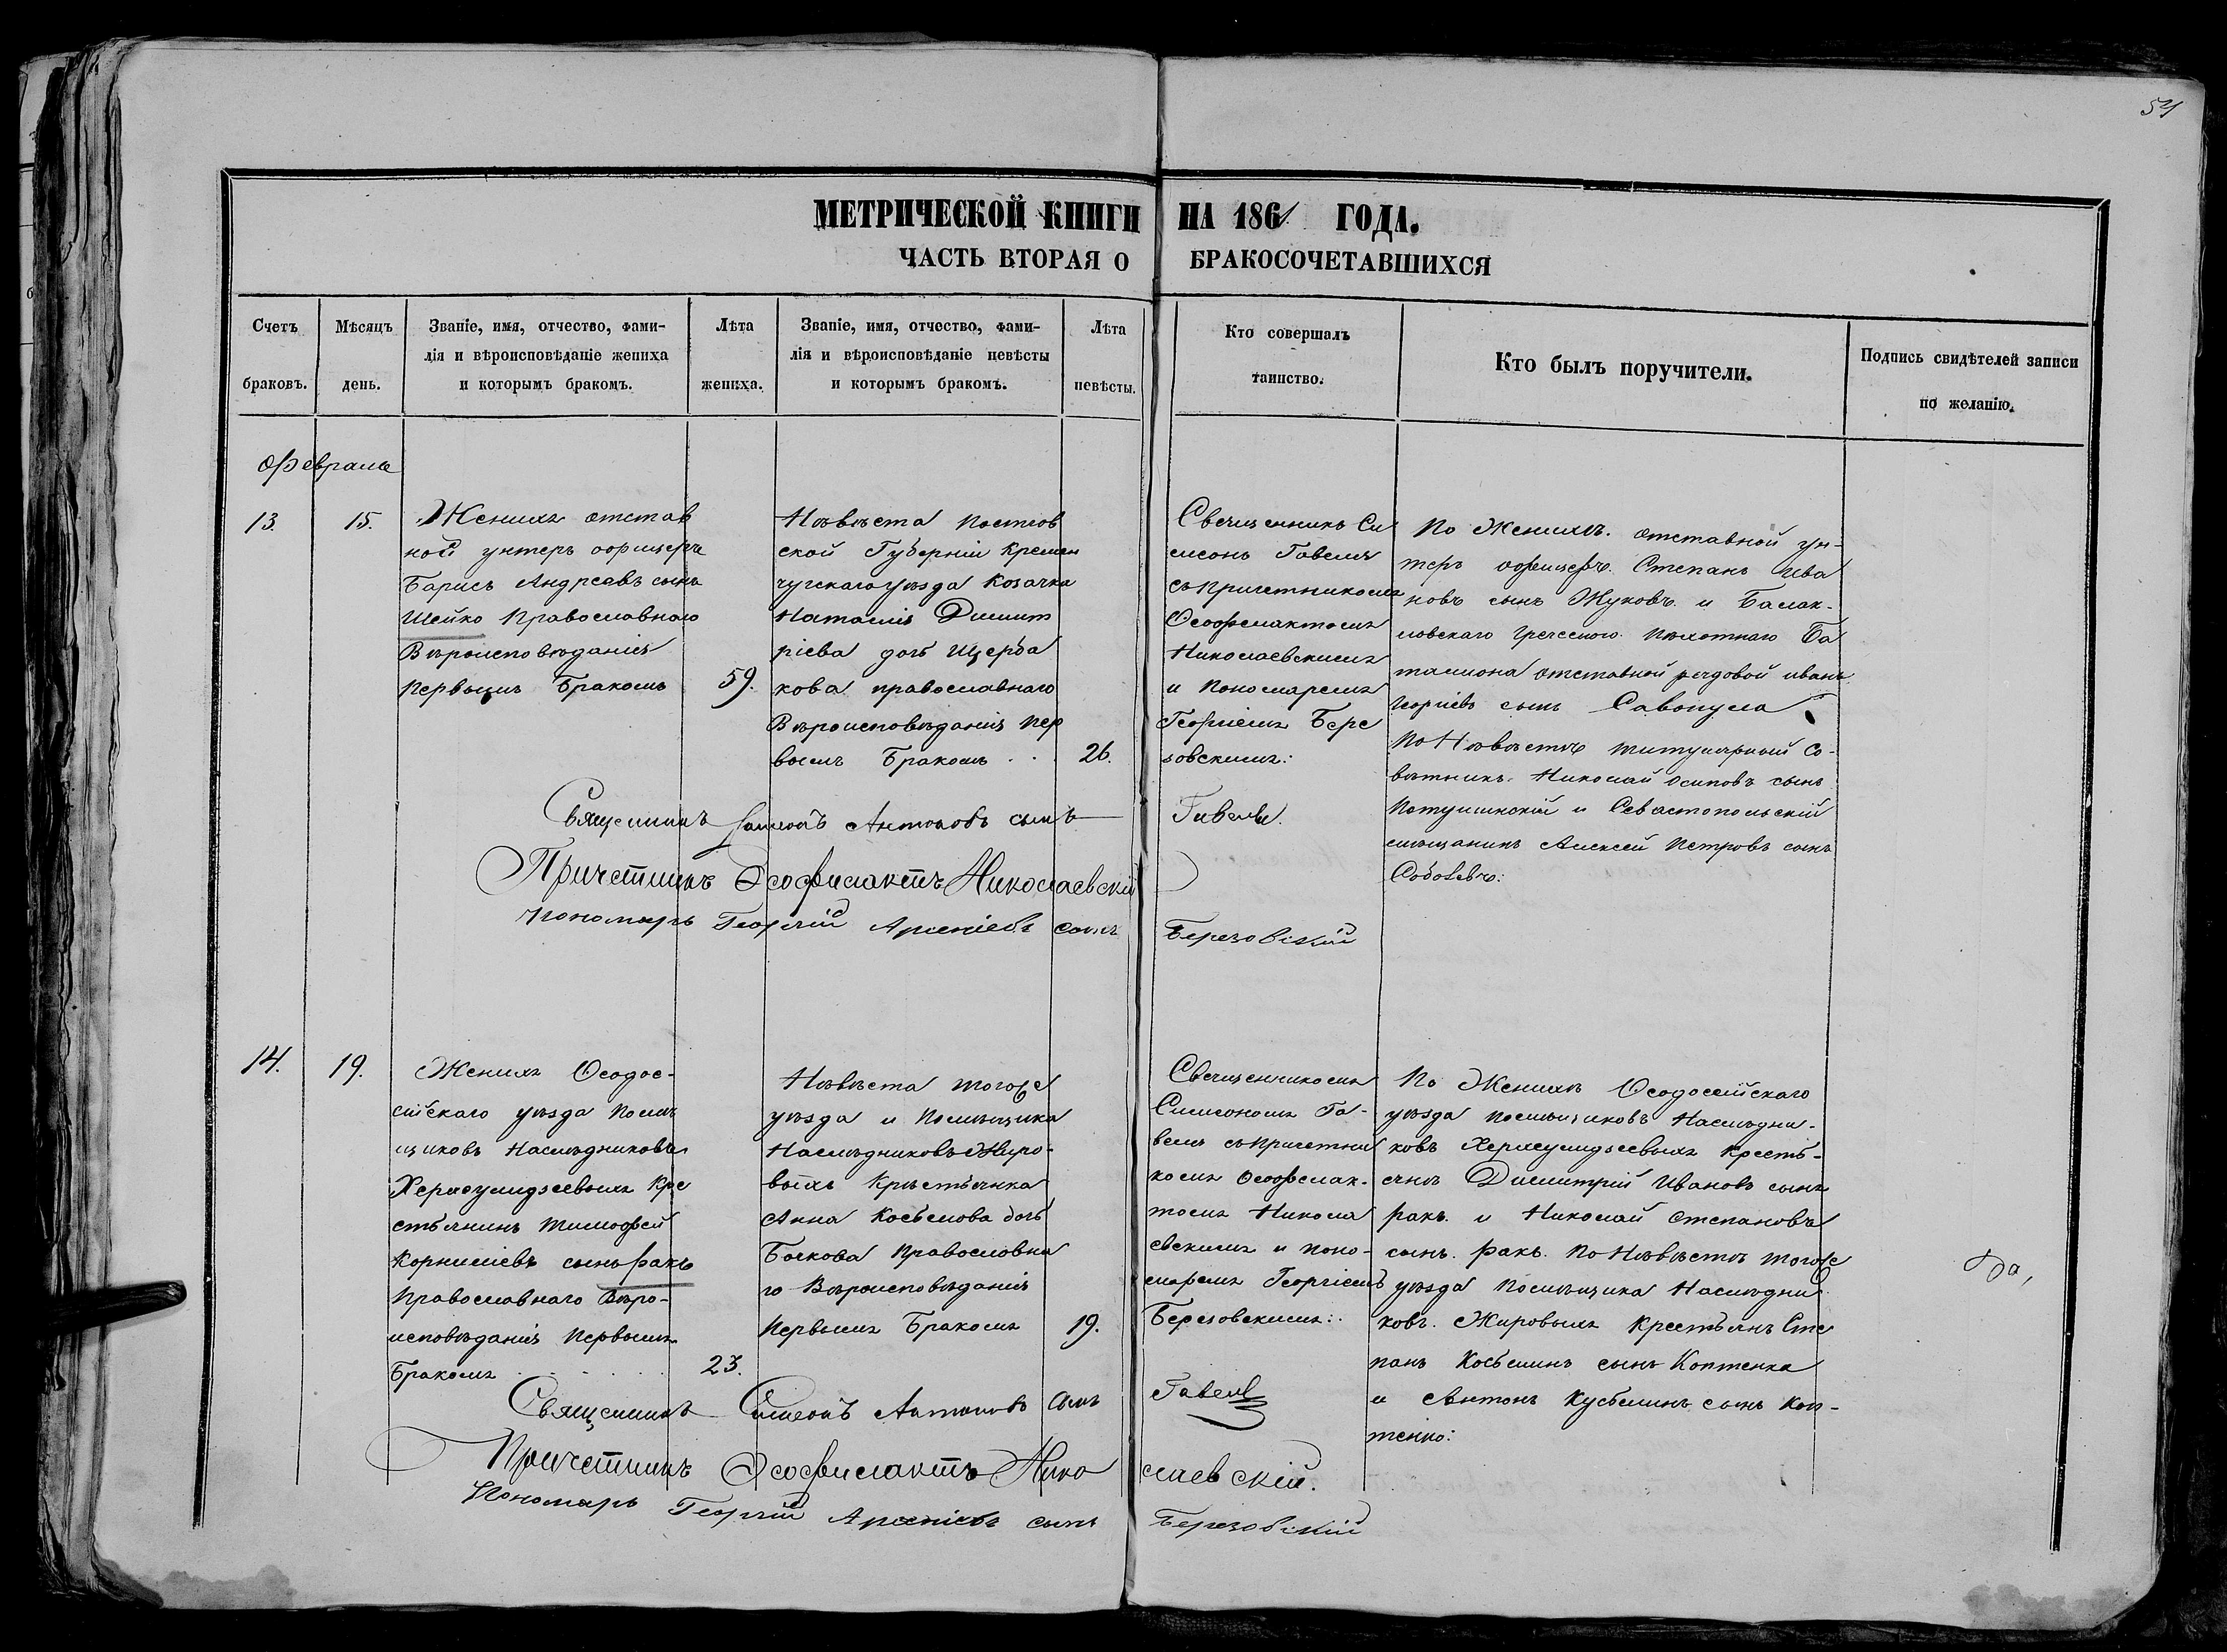 54
МЕТРИЧЕСКОЙ КНИГИ НА 1861 ГОДА.
ЧАСТЬ ВТОРАЯ О БРАКОСОЧЕТАВШИХСЯ
Счетъ браковъ.
Мѣсяцъ день.
Званіе, имя, отчество, фами-
лія и вѣроисповѣданіе жениха
и которымъ бракомъ.
Лѣта
жениха.
Званіе, имя, отчество, фами-
лія и вѣроисповѣданіе невѣсты
и которымъ бракомъ.
Лѣта
невѣсты.
Кто совершалъ
таинство.
Кто былъ поручители.
Подпись свидѣтелей записи
по желанію.
Февраля
13.
15.
Женихъ отстав
ной унтеръ офицеръ
Барисъ Андреевъ сынъ
Шейко Православнаго
Вѣроисповѣданія
Первымъ Бракомъ
59.
Нѣвѣста Полтов
ской Губерніи Кремен
чугскаго уѣзда Козачка
Наталія Димит
ріева дочь Щерба
кова православнаго
Вѣроисповѣданія пер
вымъ Бракомъ . . .
26.
Свещенникъ Си
меонъ Гавель
съ Причетникомъ
Ѳеофилактомъ
Николаевскимъ
и Пономаремъ
Георгіемъ Бере
зовскимъ:
По Женихѣ. отставной ун-
теръ офицеръ. Степанъ Ива
новъ сынъ Жуковъ. и Балак-
лавскаго Греческого. Пѣхотнаго Ба
талиона отставной редовой иванъ
Георгіевъ сынъ Савопула
По Нѣвѣсте титулярный Со-
вѣтникъ. Николай Осиповъ сынъ
и Севастопольскій
мѣщанинъ Алексей Петровъ сынъ
Священникъ Симеонъ Антоновъ сынъ Гавель.
Причетникъ Ѳеофилактъ Николаевскій
Пономарь Георгій Арсеніевъ сынъ Березовскій
14.
19.
Женихъ Ѳеодос-
сійскаго уѣзда Помѣ
щиковъ Наслѣдниковъ
Кре
стьянинъ Тимофей
Корниліевъ сынъ Ракъ
Православнаго Вѣро-
исповѣданія Первымъ
Бракомъ . . . . .
23.
Нѣвѣста тогоже
уѣзда и Помѣщика
Наслѣдниковъ Жиро-
выхъ Крѣстьянка
Анна Косьмова дочь
Бочкова Православна
го Вѣроисповѣданія
Первымъ Бракомъ
19.
Свещенникомъ
Симеономъ Га-
велъ съ Причетни
комъ Ѳеофилак-
томъ Никола
евскимъ и поно-
маремъ Георгіемъ
Березовскимъ:
По Женихѣ Ѳеодосійскаго
уѣзда помѣщиковъ Наслѣдни-
ковъ Крестъ-
янъ Димитрий Ивановъ сынъ
ракъ. и Николай Степановъ
сынъ. ракъ. По Нѣвѣсте тогоже
уѣзда Помѣщика Наслѣдни
ковъ. Жировыхъ Крестьянъ Сте
панъ Косьминъ сынъ Коптенка
и Антонъ Кусьминъ сынъ Коп-
тенко:
Священникъ Симеонъ Антоновъ сынъ Гавель
Причетникъ Ѳеофилактъ Николаевскій.
Пономарь Георгій Арсеніевъ сынъ Березовскій